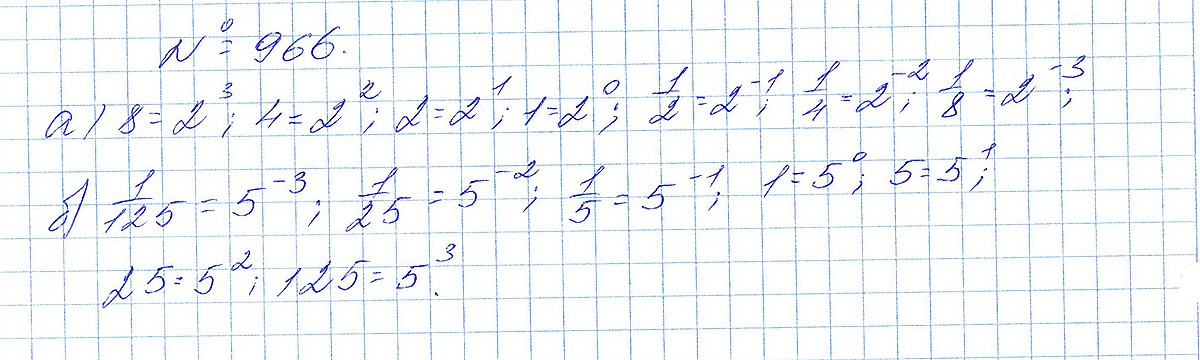 № 966.
а) 8 = 2³; 4 = 2²; 2 = 2¹; 1 = 2⁰; 1/2 = 2⁻¹; 1/4 = 2⁻²; 1/8 = 2⁻³;
б) 1/125 = 5⁻³; 1/25 = 5⁻²; 1/5 = 5⁻¹; 1 = 5⁰; 5 = 5¹;
25 = 5²; 125 = 5³.